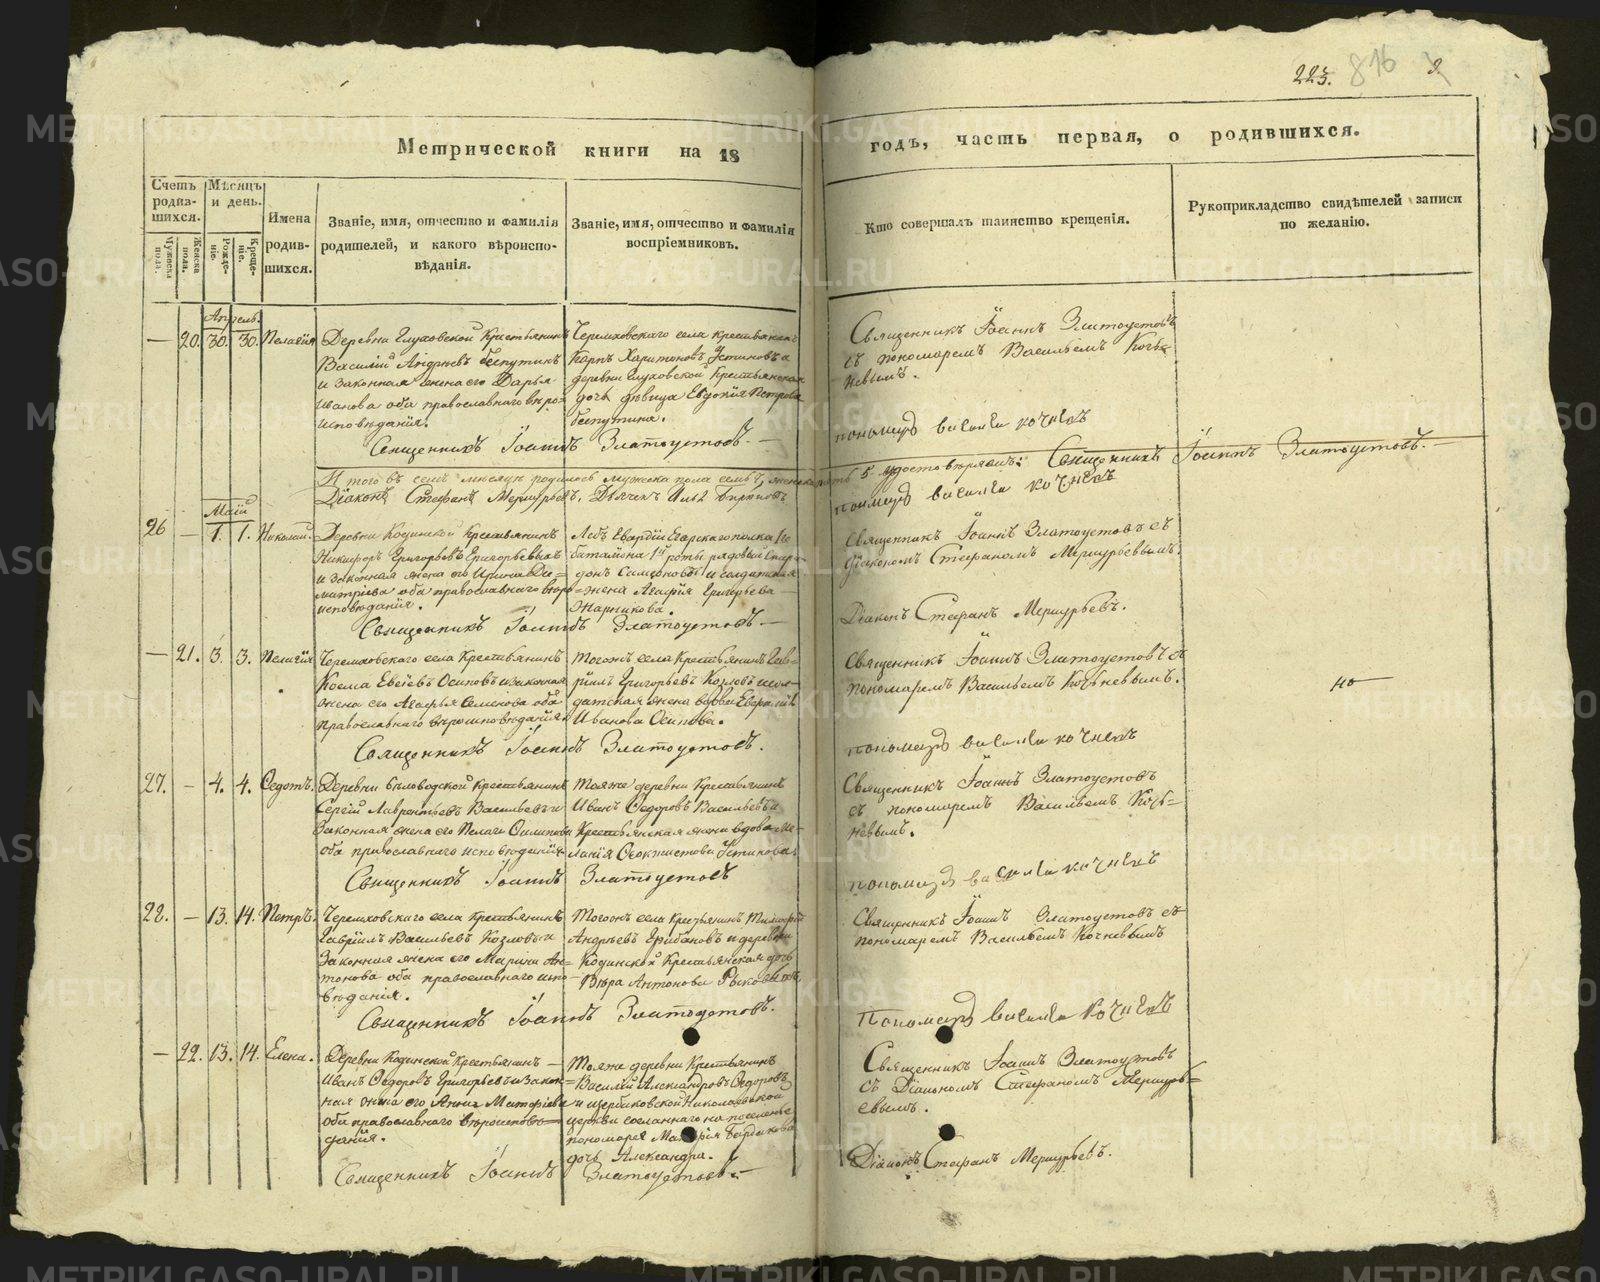 223. 816
Метрической книги на 18 годъ, часть первая, о родившихся.
Счетъ родив-шихся.
Мѣсяцъ и день.
Имена родив-шихся.
Званіе, имя, отчество и фамилія родителей, и какого вѣроиспо-вѣданія.
Званіе, имя, отчество и фамилія воспріемниковъ.
Кто совершалъ таинство крещенія.
Рукоприкладство свидѣтелей записи по желанію.
Мужеска пола.
Женска пола.
Рожде-ніе.
Креще-ніе.
Апрель.
— 20. 30. 30. Пелагія
Деревни Глуховской Крестьянинъ
Василій Андреевъ Беспутинъ
и законная жена его Дарья
Иванова оба православнаго вѣро-
исповѣданія.
Черемховскаго села крестьянинъ
Карпъ Харитоновъ Устиновъ и
деревни Глуховской Крестьянская
дочь дѣвица Евдокія Петрова
беспутина.
Священникъ Іоаннъ Златоустовъ
съ пономаремъ Васильемъ Кочь-
невымъ.
пономарь василей кочневъ
Священникъ Іоаннъ Златоустовъ.—
Итого въ семъ мѣсяцѣ родилось мужеска пола семь 7, женска пять 5 удостовѣряемъ: Священникъ Іоаннъ Златоустовъ.—
Діаконъ Стефанъ Меркурьевъ. Дьячекъ Илья
пономарь василей кочневъ
Маій
26 — 1. 1. Николай.
Деревни Кодинской Крестьянинъ
Никифоръ Григорьевъ Григорьевыхъ
и законная жена его Ирина Ди-
митріева оба православнаго вѣро-
исповѣданія.
Лебъ Гвардіи Егерскаго полка
баталіона 1й роты рядовый
донъ Симеоновъ и солдатская
жена Агафія Григорьева
Жарникова.
Священникъ Іоаннъ Златоустовъ съ
Діакономъ Стефаномъ Меркурьевымъ.
Діаконъ Стефанъ Меркурьевъ.
Священникъ Іоаннъ Златоустовъ.—
— 21. 3. 3. Пелагія
Черемховскаго села Крестьянинъ
Косма Евсіевъ Осиповъ и законная
жена его Агафья Семенова оба
православнаго вѣроисповѣданія
Тогожъ села Крестьянинъ Гав-
ріилъ Григорьевъ Козловъ и сол-
датская жена вдова
Иванова Осипова.
Священникъ Іоаннъ Златоустовъ съ
пономаремъ Васильемъ Кочьневымъ.
пономарь василей кочневъ
Священникъ Іоаннъ Златоустовъ.
27. — 4. 4. Федотъ.
Деревни Бѣловодской Крестьянинъ
Сергій Лаврентьевъ Васильевъ и
законная жена его Пелагія Филипова
оба православнаго исповѣданія
Тояже деревни Крестьянинъ
Иванъ Федоровъ Васильевъ и
Крестьянская жена вдова Ме-
ланія Феоктистова Устинова.
Священникъ Іоаннъ Златоустовъ
съ пономаремъ Васильемъ Кочь-
невымъ.
пономарь василей кочневъ
Священникъ Іоаннъ Златоустовъ
22. — 13. 14. Петръ.
Черемховскаго села Крестьянинъ
Гавріилъ Васильевъ Козловъ и
законная жена его Марина Ан-
тонова оба православнаго испо-
вѣданія.
Тогожъ села Крестьянинъ Тимофей
Андреевъ Грибановъ и деревни
Кодинской Крестьянская дочь
Вѣра Антонова
Священникъ Іоаннъ Златоустовъ съ
пономаремъ Васильемъ Кочневымъ
Пономарь василей кочневъ
Священникъ Іоаннъ Златоустовъ.
— 22. 13. 14. Елена.
Деревни Кодинской Крестьянинъ
Иванъ Федоровъ Григорьевъ и закон-
ная жена его Анна Матфіева
оба православнаго вѣроисповѣ-
данія.
Тояже деревни Крестьянинъ
Василій Александровъ Федоровъ
и щербаковской Николаевской
церкви сосланнаго на поселенье
пономаря
дочь Александра.
Священникъ Іоаннъ Златоустовъ
съ Діакономъ Стефаномъ Меркурь-
евымъ.
Діаконъ Стефанъ Меркурьевъ.
Священникъ Іоаннъ Златоустовъ.—
METRIKI.GASO-URAL.RU